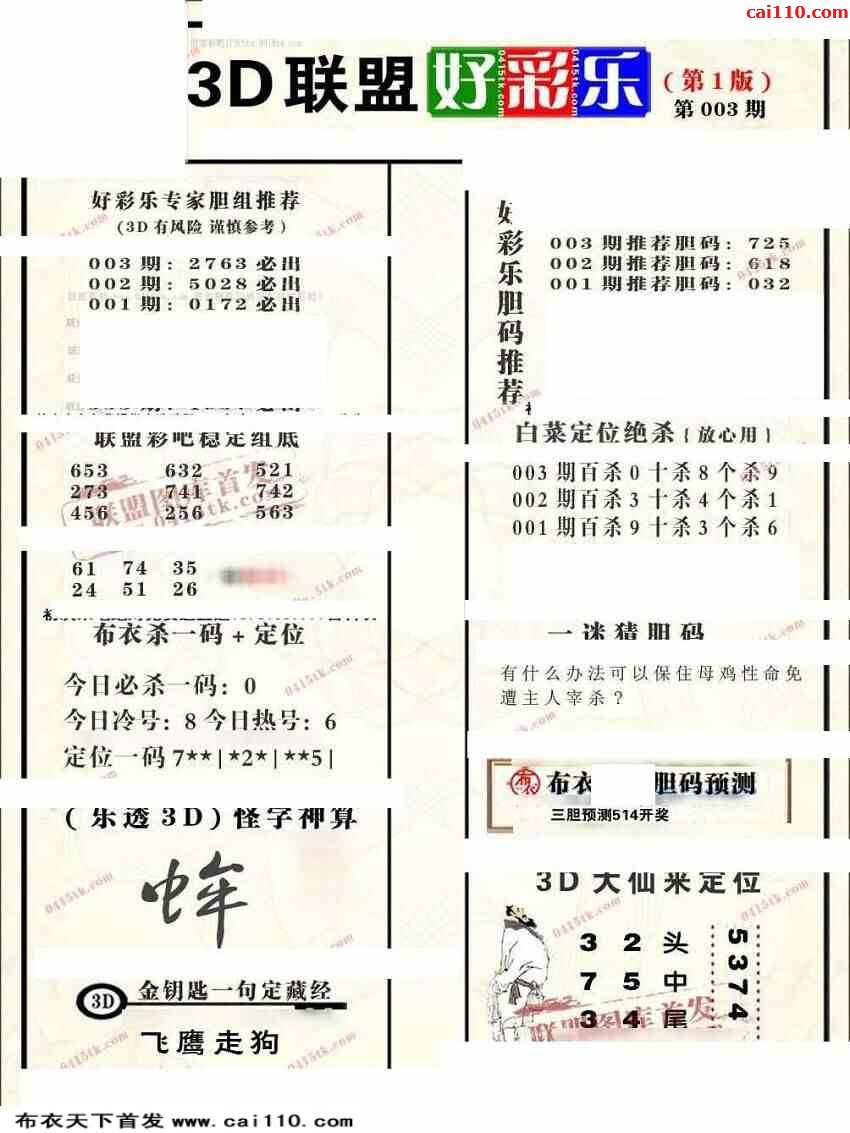 cai110.com
3D联盟好彩乐
(第1版)
第003期
好彩乐专家胆组推荐
(3D有风险 谨慎参考)
003期: 2763必出
002期: 5028必出
001期: 0172必出
联盟彩吧稳定组底
653 632 521
273 741 742
456 256 563
联盟图库首发
0415tk.com
61 74 35
24 51 26
布衣杀一码+定位
今日必杀一码: 0
今日冷号: 8 今日热号: 6
定位一码7**|*2*|**5|
(乐透3D)怪字神算
3D
金钥匙一句定藏经
飞鹰走狗
好彩乐胆码推荐
003期推荐胆码: 725
002期推荐胆码: 618
001期推荐胆码: 032
白菜定位绝杀{放心用}
003期百杀0十杀8个杀9
002期百杀3十杀4个杀1
001期百杀9十杀3个杀6
一谜猜胆码
有什么办法可以保住母鸡性命免
遭主人宰杀？
布衣
布衣 胆码预测
三胆预测514开奖
3D大仙来定位
3 2 头
7 5 中
3 4 尾
5374
联盟图库首发
布衣天下首发 www.cai110.com